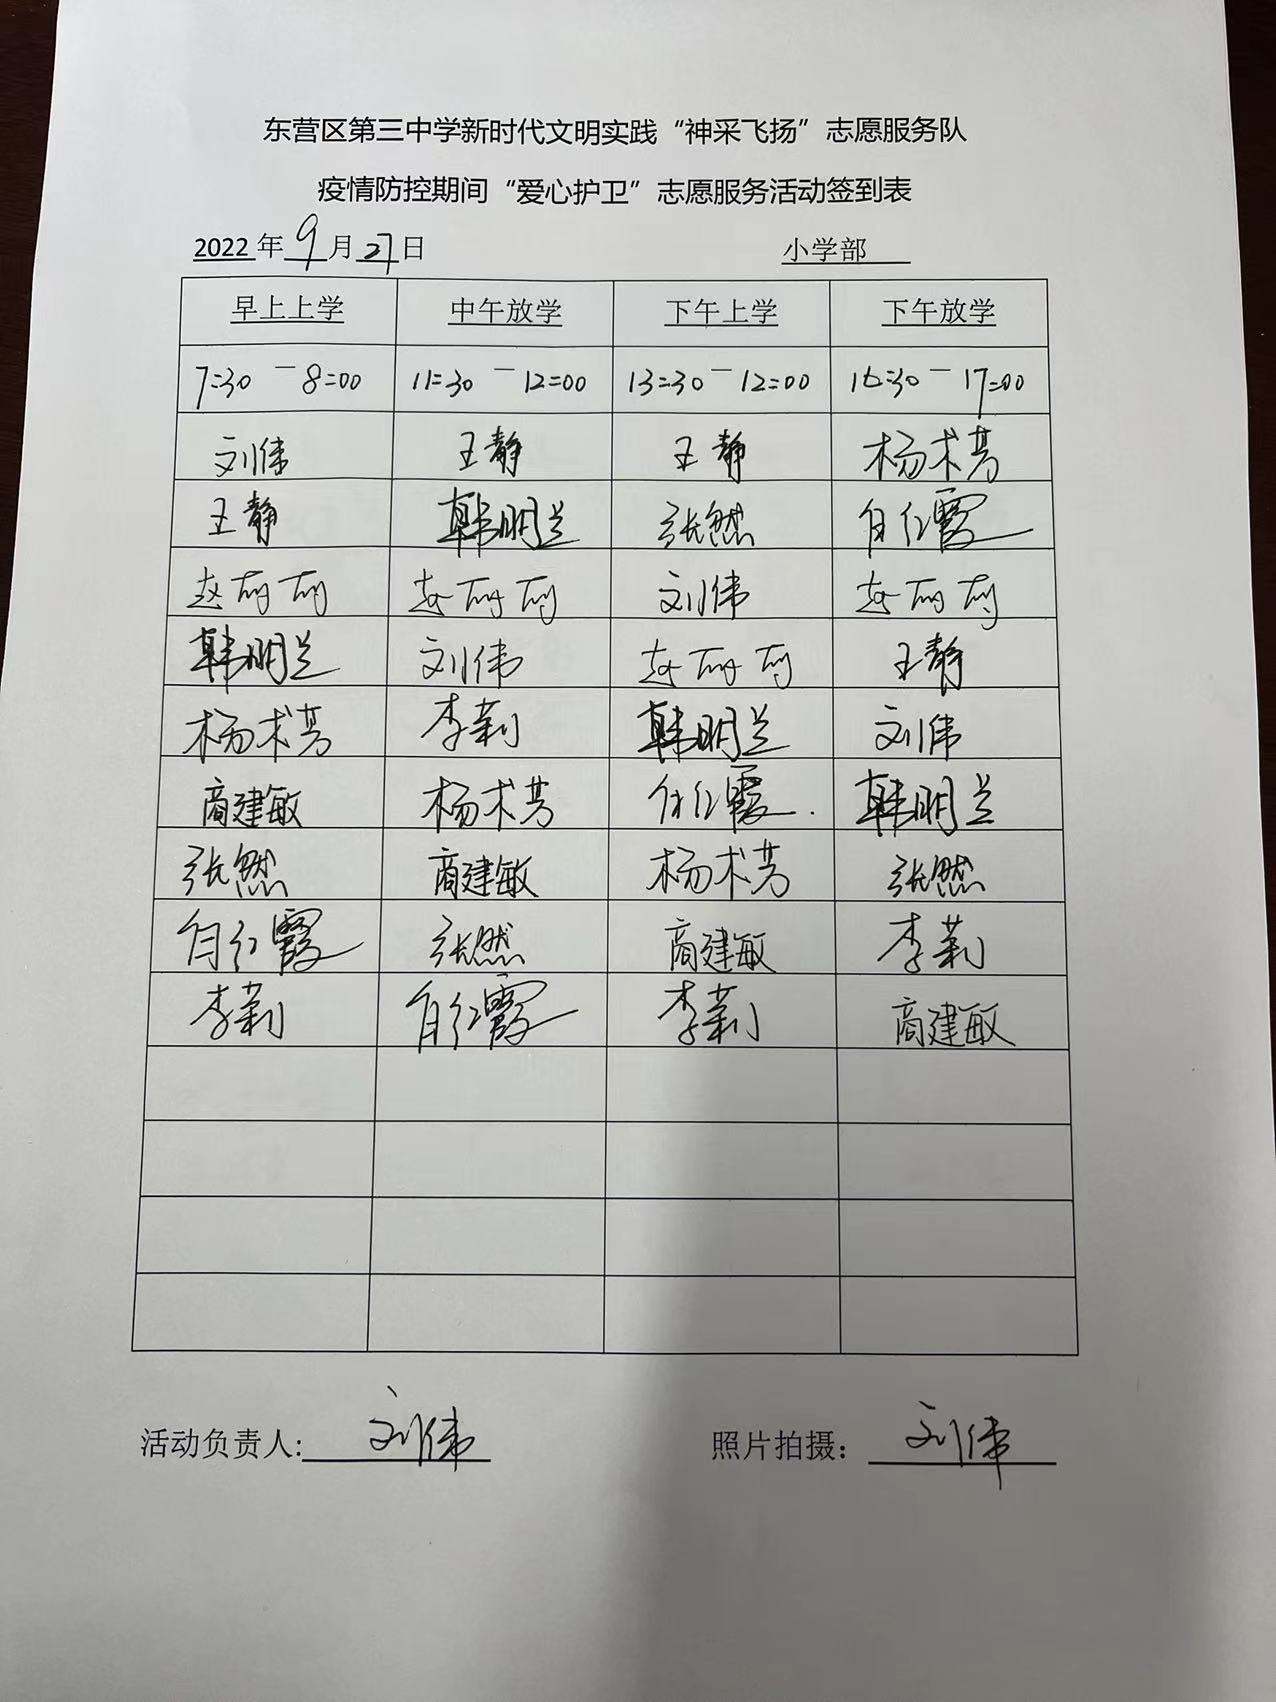 东营区第三中学新时代文明实践“神采飞扬”志愿服务队
疫情防控期间“爱心护卫”志愿服务活动签到表
2022年9月27日 小学部
早上上学 中午放学 下午上学 下午放学
7:30-8:00 11:30-12:00 13:30-12:00 16:30-17:00
刘伟 王静 王静 杨术芳
王静 韩明兰 张然 自红霞
赵丽丽 赵丽丽 刘伟 赵丽丽
韩明兰 刘伟 赵丽丽 王静
杨术芳 李莉 韩明兰 刘伟
商建敏 杨术芳 自红霞 韩明兰
张然 商建敏 杨术芳 张然
自红霞 张然 商建敏 李莉
李莉 自红霞 李莉 商建敏
活动负责人:刘伟 照片拍摄：刘伟